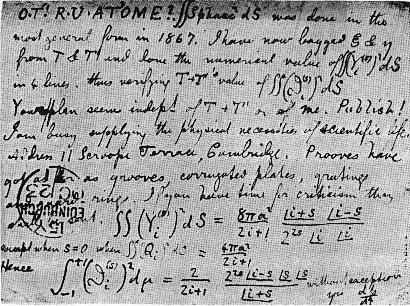 O.T'. R.U. AT 'OME? ∬ Spharc² dS was done in the
most general form in 1867. I have now bagged ξ & η
from T & T' and done the numerical value of ∬(Y_i^(s))² dS
in 4 lines. thus verifying T + T''s value of ∬(ϑ_i^(s))² dS
Your plan seems indept of T + T' or of me. Publish!
I am busy supplying the physical necessities of scientific life
address 11 Scroope Terrace, Cambridge. Prooves have
got as grooves, corrugated plates, gratings
rings. If you have time for criticism then
∬(Y_i^(s))² dS = 8πa²/(2i+1) · ⌊i+s ⌊i−s / 2^{2s} ⌊i ⌊i
except when s=0 when ∬Q_i² dS = 4πa²/(2i+1)
Hence
∫_{−1}^{+1} (ϑ_i^(s))² dμ = 2/(2i+1) · 2^{2s} ⌊i−s ⌊s ⌊s / ⌊i+s without exception
EDINBURGH
yrs dp/dt